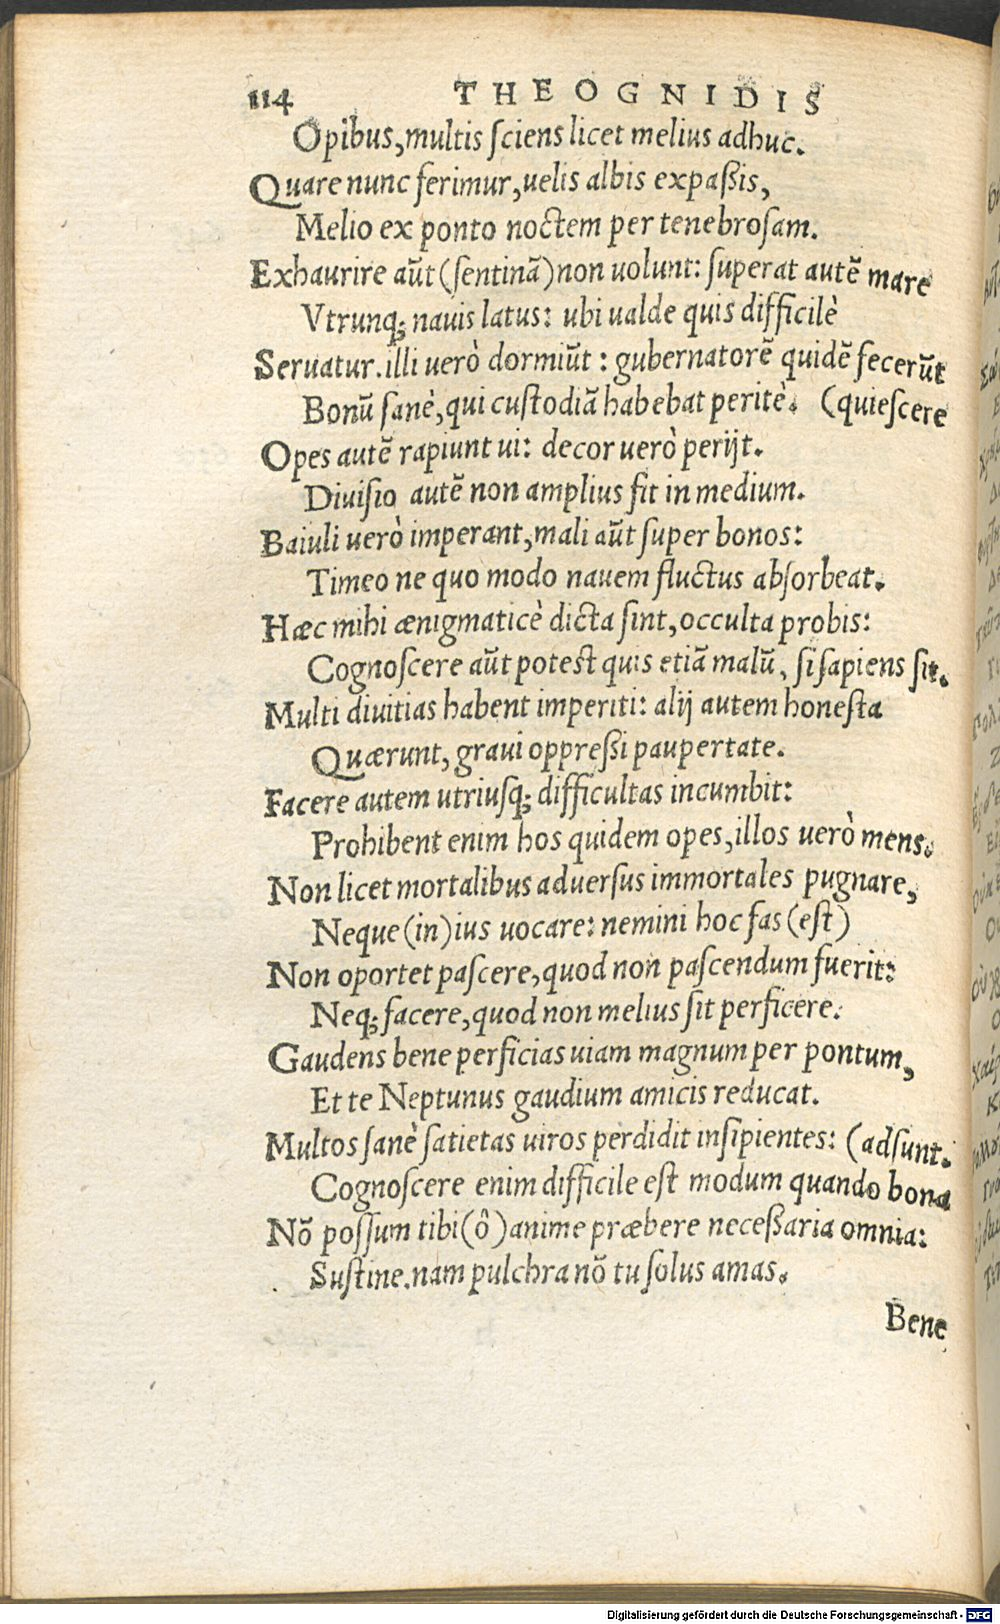 114 THEOGNIDIS
Opibus, multis ſciens licet melius adhuc.
Quare nunc ferimur, uelis albis expaßis,
Melio ex ponto noctem per tenebroſam.
Exhaurire aūt (ſentinã) non uolunt: ſuperat autẽ mare
Vtrunq; nauis latus: ubi ualde quis difficilè
Seruatur. illi uerò dormiūt: gubernatorẽ quidẽ fecerūt
Bonũ ſanè, qui cuſtodiã habebat peritè. (quieſcere
Opes autẽ rapiunt ui: decor uerò perijt.
Diuiſio autẽ non amplius fit in medium.
Baiuli uerò imperant, mali aūt ſuper bonos:
Timeo ne quo modo nauem fluctus abſorbeat.
Hæc mihi ænigmaticè dicta ſint, occulta probis:
Cognoſcere aūt poteſt quis etiã malũ, ſi ſapiens ſit.
Multi diuitias habent imperiti: alij autem honeſta
Quærunt, graui oppreßi paupertate.
Facere autem utriuſq; difficultas incumbit:
Prohibent enim hos quidem opes, illos uerò mens.
Non licet mortalibus aduerſus immortales pugnare,
Neque (in) ius uocare: nemini hoc fas (eſt)
Non oportet paſcere, quod non paſcendum fuerit:
Neq; facere, quod non melius ſit perficere.
Gaudens bene perficias uiam magnum per pontum,
Et te Neptunus gaudium amicis reducat.
Multos ſanè ſatietas uiros perdidit inſipientes: (adſunt.
Cognoſcere enim difficile eſt modum quando bona
Nõ poſſum tibi (ô) anime præbere neceßaria omnia:
Suſtine. nam pulchra nõ tu ſolus amas.
Bene
Digitalisierung gefördert durch die Deutsche Forschungsgemeinschaft - DFG